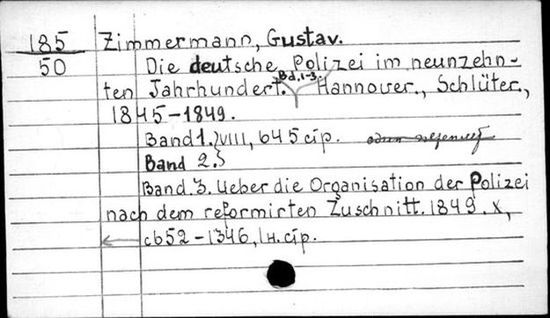 185
50
Zimmermann, Gustav.
Die deutsche Polizei im neunzehn-
Bd. 1-3.
ten Jahrhundert. Hannover., Schlüter.,
1845-1849.
Band 1.} VIII, 645 стр.
Band 2.}
Band. 3. Ueber die Organisation der Polizei
nach dem reformirten Zuschnitt. 1849. X,
с 652-1346, 1 н. стр.